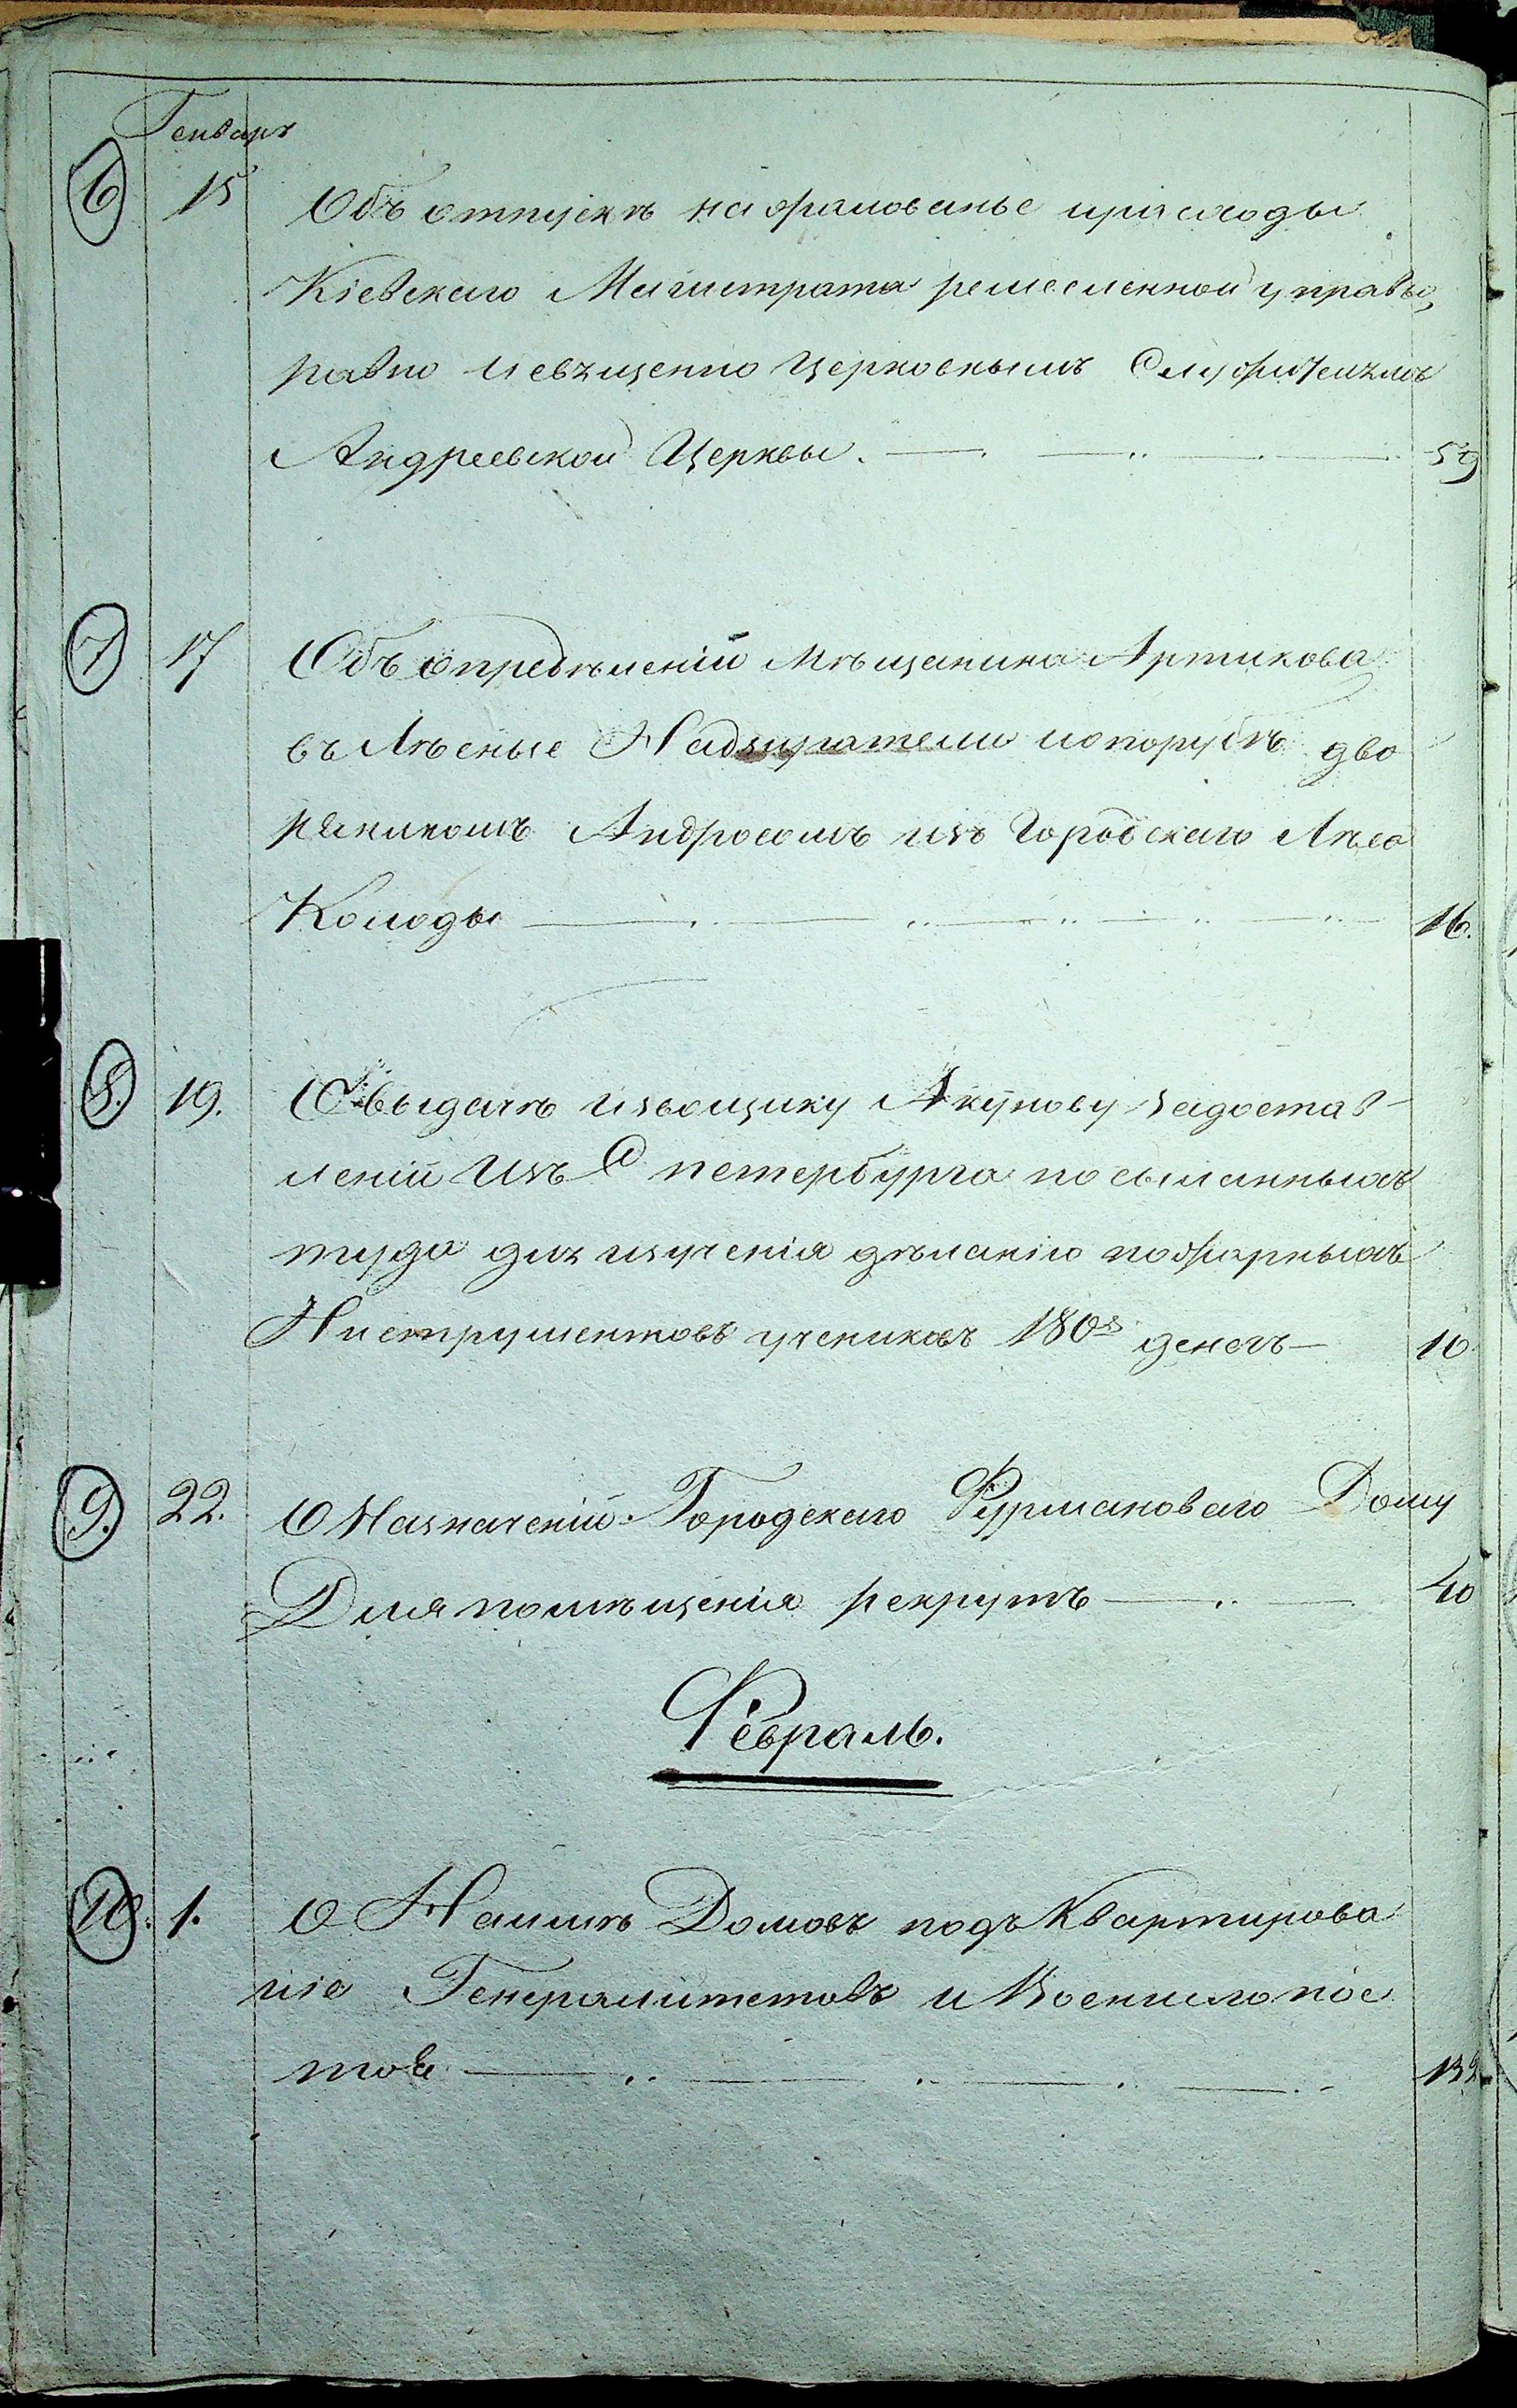 Генварь
6 15 Объ отпускѣ на жалованье и расходы
Кіевскаго Магистрата ремесленной управы,
равно и священно церковнымъ Служителямъ
Андреевской Церквы. 59
7 17 Объ опредѣленіи мѣщанина Артикова
въ Лѣсные Надзиратели и о порубкѣ дво
ряниномъ Андросомъ изъ Городскаго Лѣса
Колоды 16.
8. 19. О выдачѣ извощику Акунову за достав
леніи изъ С петербурга посыланныхъ
туда для изученія дѣланію пожарныхъ
Инструментовъ учениковъ 180 р. денегъ 10.
9. 22. О Назначеніи Городскаго Фурмановаго Дому
Для помѣщенія рекрутъ 40
Февраль.
10. 1. О Наимѣ Домовъ подъ Квартирова
ніе Генералитетовъ и Воинскаго пос
тоя 132